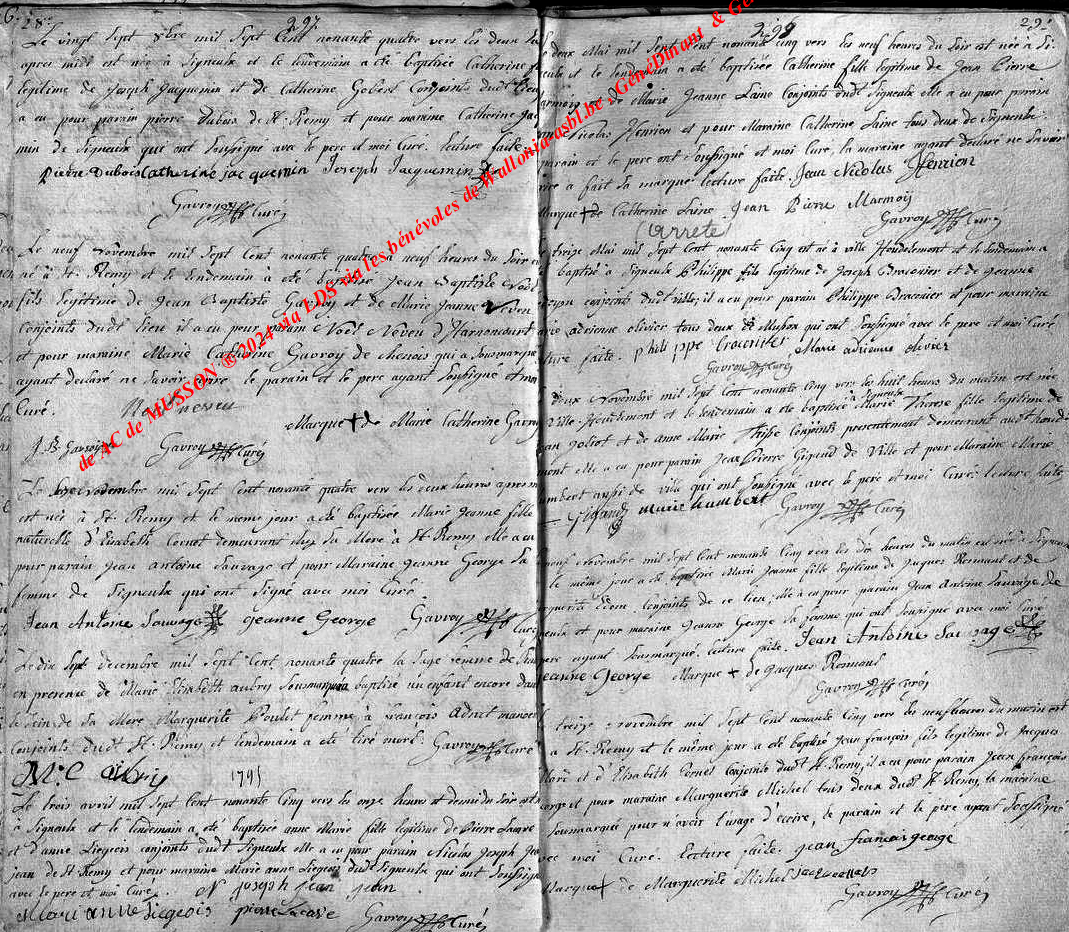 28e 297
Le vingt Sept 8bre mil Sept Cent nonante quatre vers les deux
apres midi est née a Signeulx et le lendemain a été baptisée Catherine
legitime de Joseph Jacquemin et de Catherine Gobert Conjoints dudt lieu
a eu pour parain pierre Dubois de St Remy et pour maraine Catherine Jac
min de Signeulx qui ont Soussigné avec le pere et moi Curé. lecture faite
Pierre Dubois Catherine jacquemin Joseph Jacquemin
Gavroy Curé
Le neuf novembre mil Sept Cent nonante quatre neuf heures du Soir
né à St Remy et le lendemain à été baptisé Jean Baptiste Noël
fils legitime de Jean Baptiste Gavroy et de Marie Jeanne Neven
Conjoints dudt lieu il a eu pour parain Noël Neveu d'Harnoncourt
et pour maraine Marie Catherine Gavroy de chenois qui a Sousmarqué
ayant declaré ne Savoir ecrire le parain et le pere ayant Soussigné et moi
Curé.
Marque + de Marie Catherine Gavroy
J B Gavroy Gavroy Curé
Le novembre mil Sept Cent nonante quatre vers les deux heures apres
est née à St Remy et le meme jour a été baptisée Marie Jeanne fille
naturelle d'Elisabeth Cornet demeurant chez Sa Mere à St Remy elle a eu
pour parain Jean Antoine Sauvage et pour Maraine Jeanne George Sa
femme de Signeulx qui ont Signé avec moi Curé.
Jean Antoine Sauvage jeanne George Gavroy Curé
Le dix Sept decembre mil Sept Cent nonante quatre la Sage femme de
en presence de Marie Elisabeth aubry Sousmarquée baptisé un enfant encore dans
le Sein de Sa Mere Marguerite Poulet femme à françois Adnet
Conjoints dudt St Rémy et lendemain a été tiré mort. Gavroy Curé
1795
Le trois avril mil Sept Cent nonante Cinq vers les onze heures et demi du Soir est
à Signeulx et le lendemain a été baptisée anne Marie fille legitime de Pierre
et d'anne Liegeois conjoints dudt Signeulx elle a eu pour parain Nicolas Joseph
jean de St Remy et pour maraine Marie anne Liegeois dudt Signeulx qui ont Soussigné
avec le pere et moi Curé. N joseph jean
Mari anne Liegeois pierre Gavroy Curé
298 29e
deux Mai mil Sept Cent nonante Cinq vers les neuf heures du Soir est née à Si
et le lendemain a été baptisée Catherine fille legitime de Jean Pierre
et de Marie Jeanne Laine Conjoints dudt Signeulx elle a eu pour parain
Nicolas Henrion et pour Maraine Catherine Laine tous deux de Signeulx
parain et le pere ont Soussigné et moi Curé, la maraine ayant declaré ne Savoir
a fait Sa marque lecture faite. Jean Nicolas Henrion
Marque + de Catherine Laine Jean Pierre Marmoi
(arrete) Gavroy Curé
treize Mai mil Sept Cent nonante Cinq est né à ville Houdlemont et le lendemain a
baptisé à Signeulx Philippe fils legitime de Joseph Braconier et de Jeanne
conjoints dudt ville; il a eu pour parain Philippe Braconier et pour maraine
adrienne olivier tous deux de Musson qui ont Soussigné avec le pere et moi Curé
faite. philippe Marie adrienne olivier
Gavroy Curé
deux Novembre mil Sept Cent nonante Cinq vers les huit heures du matin est née
Ville-Houdlemont et le lendemain a été baptisée à Signeulx Marie Therese fille legitime de
Joliot et de anne Marie Conjoints presentement demeurant audt
elle a eu pour parain Jean Pierre Gigaud de Ville et pour Maraine Marie
umbert aussi de ville qui ont Soussigné avec le pere et moi Curé. lecture faite
Gigaud marie humbert Gavroy Curé
neuf Novembre mil Sept Cent nonante Cinq vers les dix heures du matin est née à Signeulx
le même jour a été baptisée Marie Jeanne fille legitime de Jaques Remaux et de
Conjoints de ce lieu; elle a eu pour parain Jean Antoine Sauvage de
et pour maraine Jeanne George Sa femme qui ont Soussigné avec moi Curé
pere ayant Sousmarqué. lecture faite. Jean Antoine Sauvage
jeanne George Marque + de Jaques Remaux
Gavroy Curé
treize novembre mil Sept Cent nonante Cinq vers les neuf heures du matin est
a St Remy et le même jour a été baptisé Jean françois fils legitime de Jacques
et d'Elisabeth Cornet Conjoints dudt St Remy, il a eu pour parain Jean François
george et pour maraine Marguerite Michel tous deux dudt St Remy, la maraine
Sousmarquée pour n'avoir l'usage d'écrire, le parain et le péré ayant Soussigné
avec moi Curé. lecture faite. jean francoi george
Marque + de Marguerite Michel
Gavroy Curé
de AC de MUSSON ® 2024 via LDS via les bénévoles de Wallonia-asbl.be, Génébinant & Gé